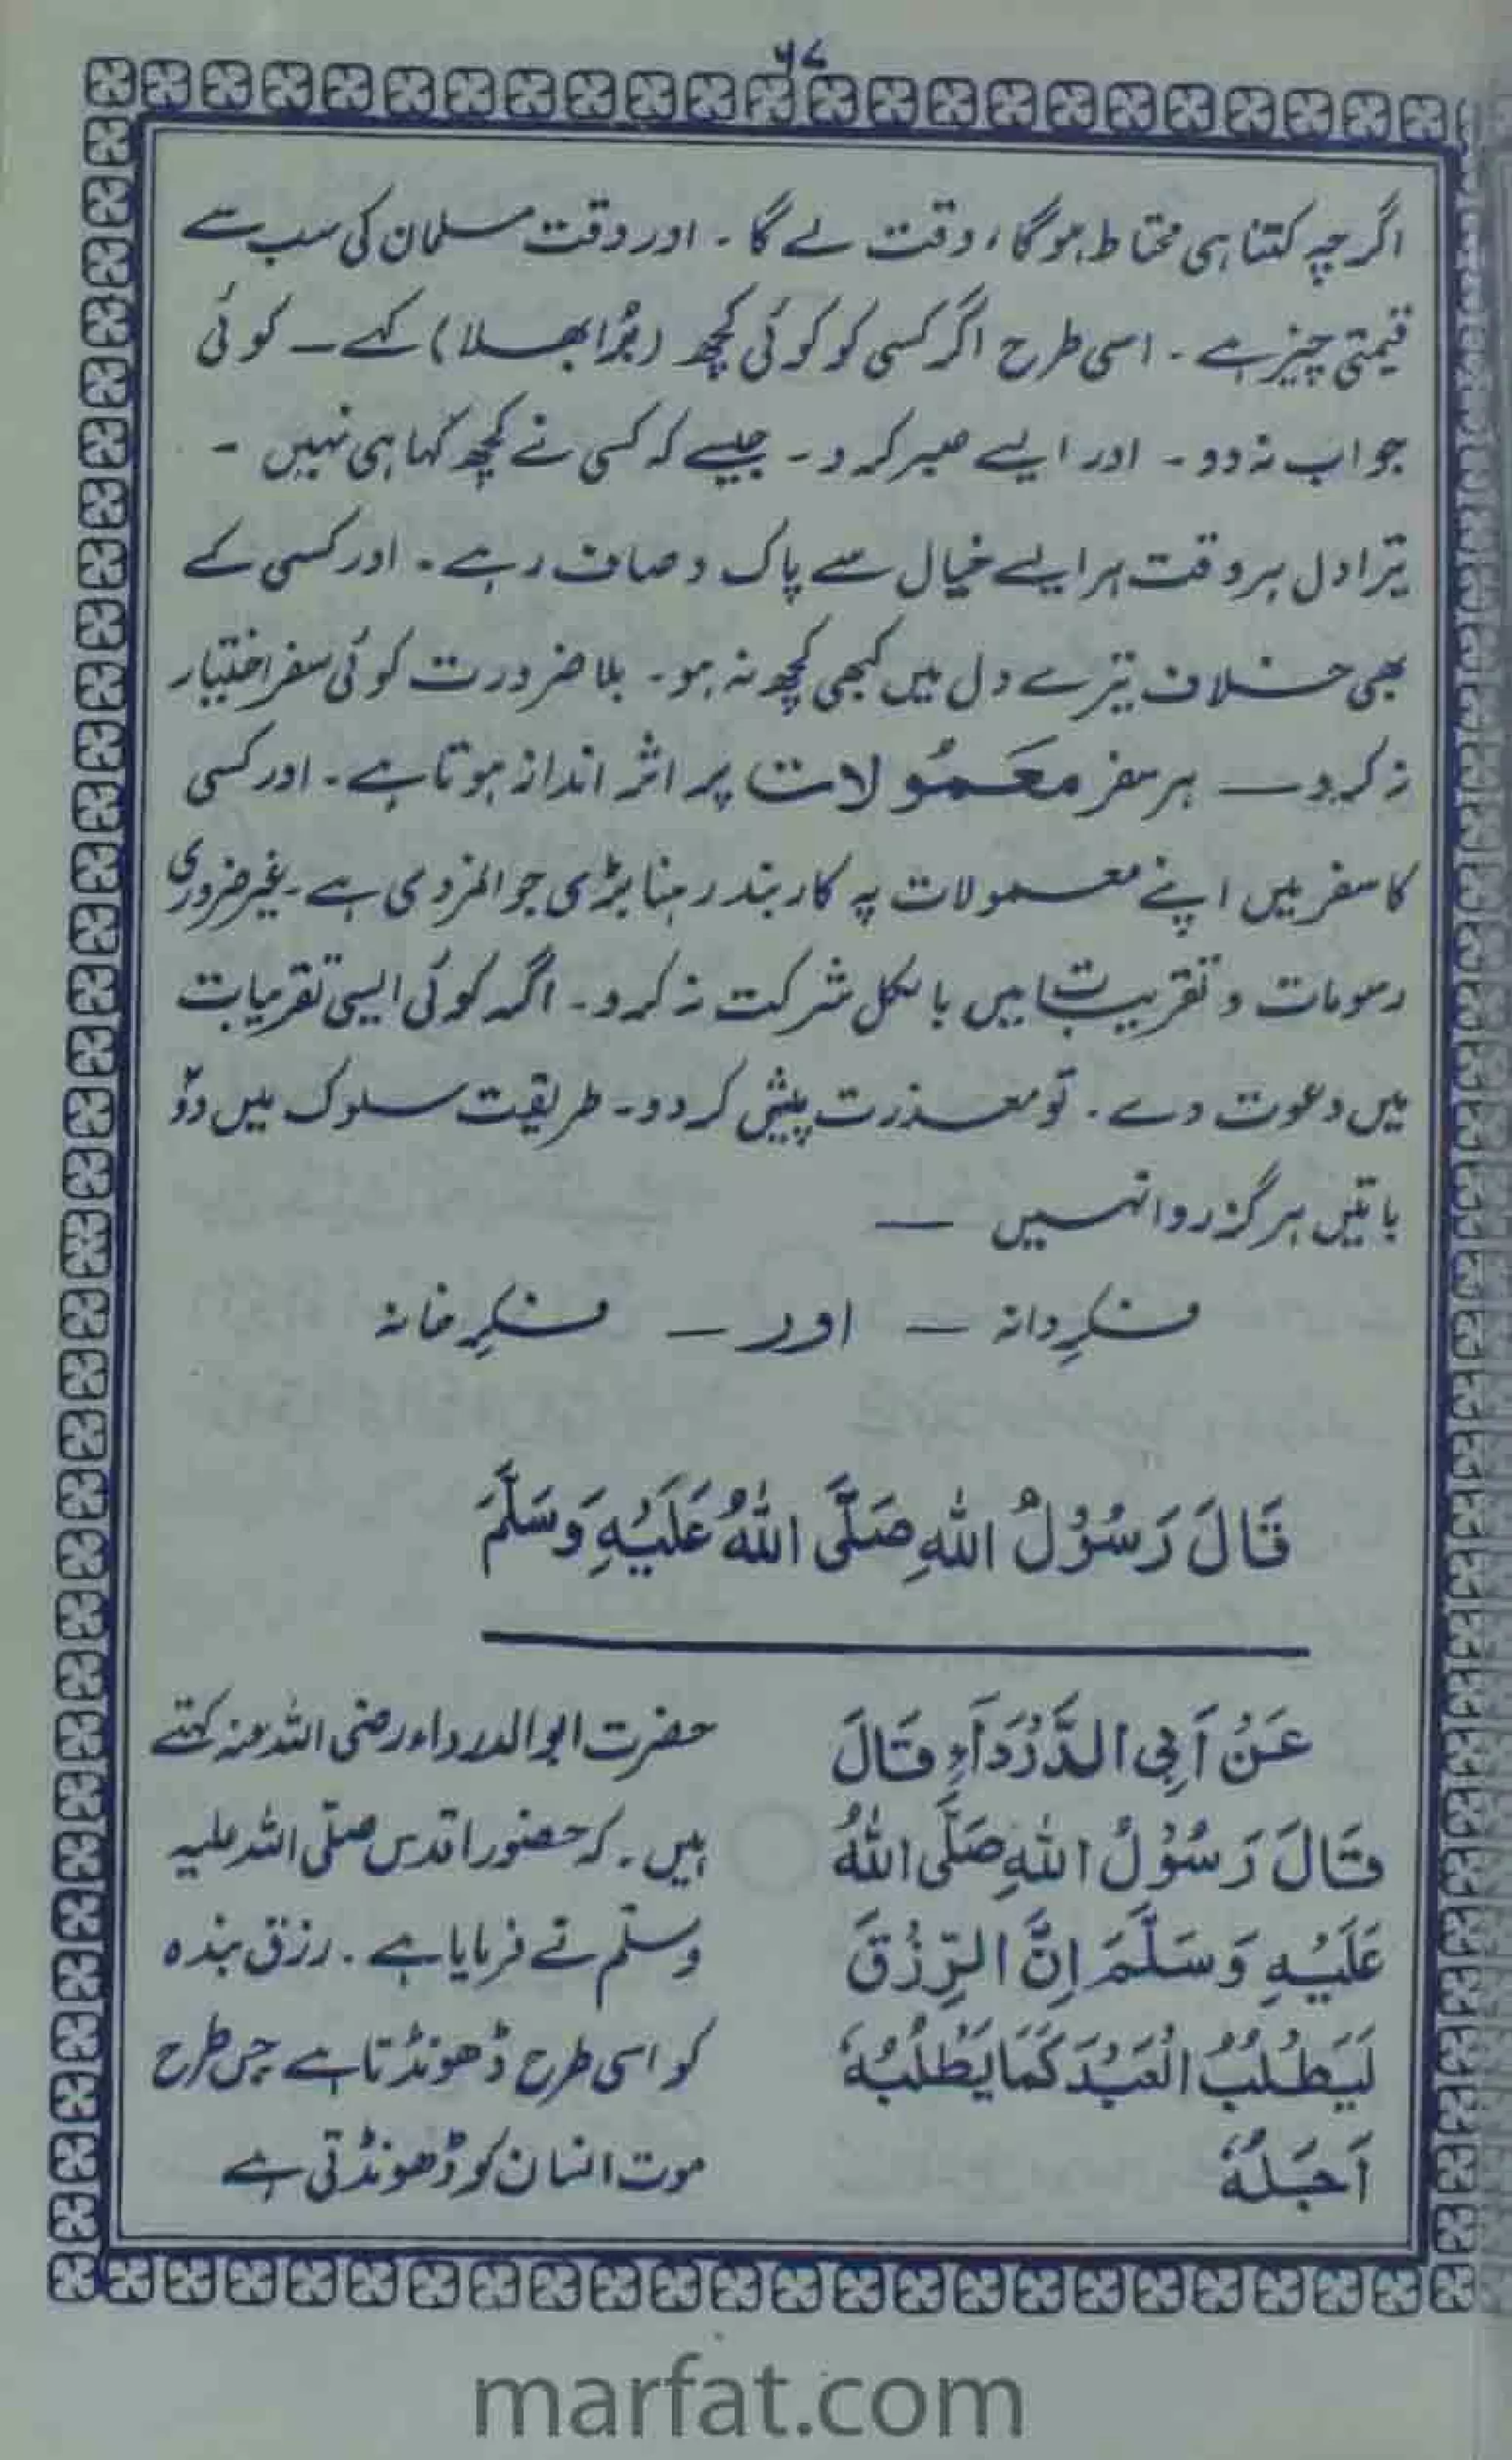 ۵۷
اگرچہ کتنا ہی محتاط ہوگا، وقت لے گا ۔ اور وقت مسلمان کی سب سے
قیمتی چیز ہے ۔ اسی طرح اگر کسی کو کوئی کچھ (بُرا بھلا) کہے ــ کوئی
جواب نہ دو ۔ اور ایسے صبر کرو ۔ جیسے کہ کسی نے کچھ کہا ہی نہیں ۔
تیرا دل ہر وقت ہر ایسے خیال سے پاک و صاف رہے ۔ اور کسی کے
بھی خلاف تیرے دل میں کبھی کچھ نہ ہو ۔ بلا ضرورت کوئی سفر اختیار
نہ کرو ــ ہر سفر معمُولات پر اثر انداز ہوتا ہے ۔ اور کسی
کا سفر میں اپنے معمولات پہ کاربند رہنا بڑی جوانمردی ہے ۔ غیر ضروری
رسومات و تقریبات میں بالکل شرکت نہ کرو ۔ اگر کوئی ایسی تقریبات
میں دعوت دے ۔ تو معذرت پیش کر دو ۔ طریقت سلوک میں دوؔ
باتیں ہرگز روا نہیں ــ
فکرِ دانہ ــ اور ــ فکرِ خانہ
قَالَ رَسُوْلُ اللهِ صَلَّى اللهُ عَلَيْهِ وَسَلَّمَ
عَنْ اَبِي الدَّرْدَآءِ قَالَ
قَالَ رَسُوْلُ اللهِ صَلَّى اللهُ
عَلَيْهِ وَسَلَّمَ اِنَّ الرِّزْقَ
لَيَطْلُبُ الْعَبْدَ كَمَا يَطْلُبُهٗ
اَجَلُهٗ
حضرت ابو الدرداء رضی اللہ عنہ کہتے
ہیں ۔ کہ حضور اقدس صلّی اللہ علیہ
وسلّم نے فرمایا ہے ۔ رزق بندہ
کو اسی طرح ڈھونڈتا ہے جس طرح
موت انسان کو ڈھونڈتی ہے
marfat.com